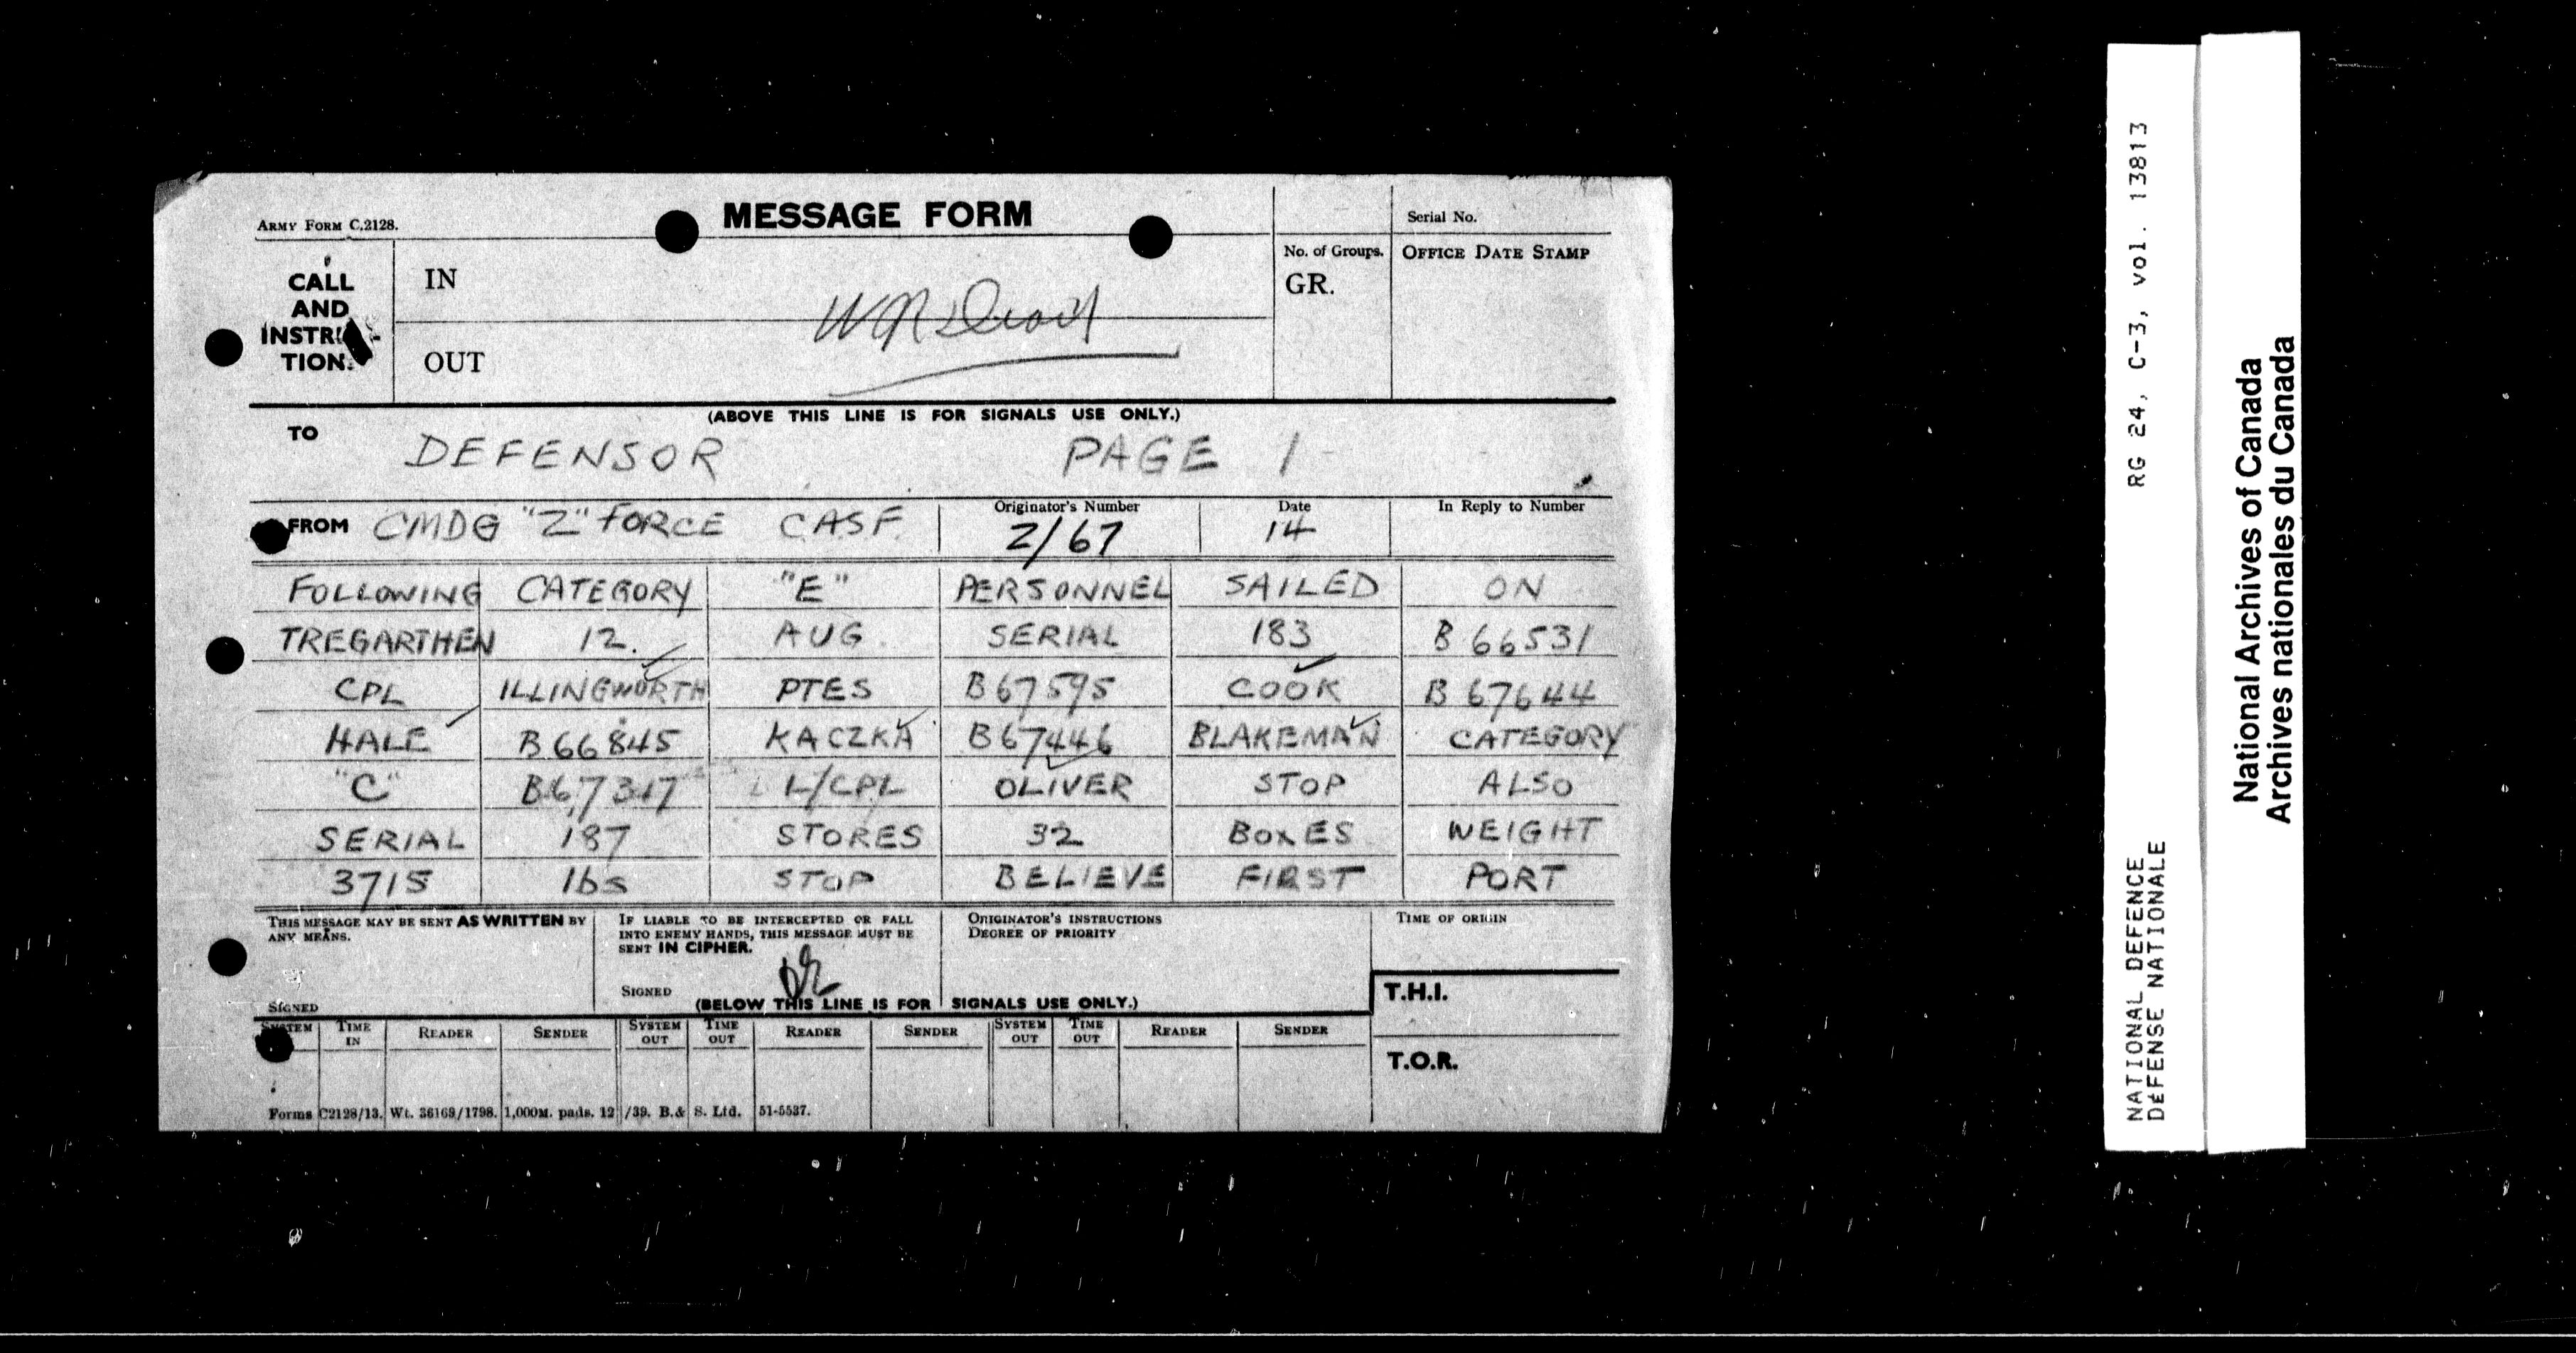 ARMY FORM C.2128.
MESSAGE FORM
Serial No.
CALL AND INSTRUC- TION.
IN
OUT
No. of Groups.
GR.
OFFICE DATE STAMP
(ABOVE THIS LINE IS FOR SIGNALS USE ONLY.)
TO DEFENSOR PAGE 1
FROM CMDG "Z" FORCE CASF
Originator's Number
Z/67
Date
14
In Reply to Number
FOLLOWING CATEGORY "E" PERSONNEL SAILED ON
TREGARTHEN 12. AUG SERIAL 183 B 66531
CPL ILLINGWORTH PTES B67595 COOK B 67644
HALE B66845 KACZKA B67446 BLAKEMAN CATEGORY
"C" B67317 L/CPL OLIVER STOP ALSO
SERIAL 187 STORES 32 BOXES WEIGHT
3715 lbs STOP BELIEVE FIRST PORT
THIS MESSAGE MAY BE SENT AS WRITTEN BY ANY MEANS.
SIGNED
IF LIABLE TO BE INTERCEPTED OR FALL INTO ENEMY HANDS, THIS MESSAGE MUST BE SENT IN CIPHER.
SIGNED
ORIGINATOR'S INSTRUCTIONS
DEGREE OF PRIORITY
TIME OF ORIGIN
(BELOW THIS LINE IS FOR SIGNALS USE ONLY.)
T.H.I.
SYSTEM TIME IN READER SENDER SYSTEM OUT TIME OUT READER SENDER SYSTEM OUT TIME OUT READER SENDER
T.O.R.
Forms C2128/13. Wt. 36169/1798. 1,000M. pads. 12/39. B.& S. Ltd. 51-5537.
RG 24, C-3, vol. 13813
NATIONAL DEFENCE
DÉFENSE NATIONALE
National Archives of Canada
Archives nationales du Canada